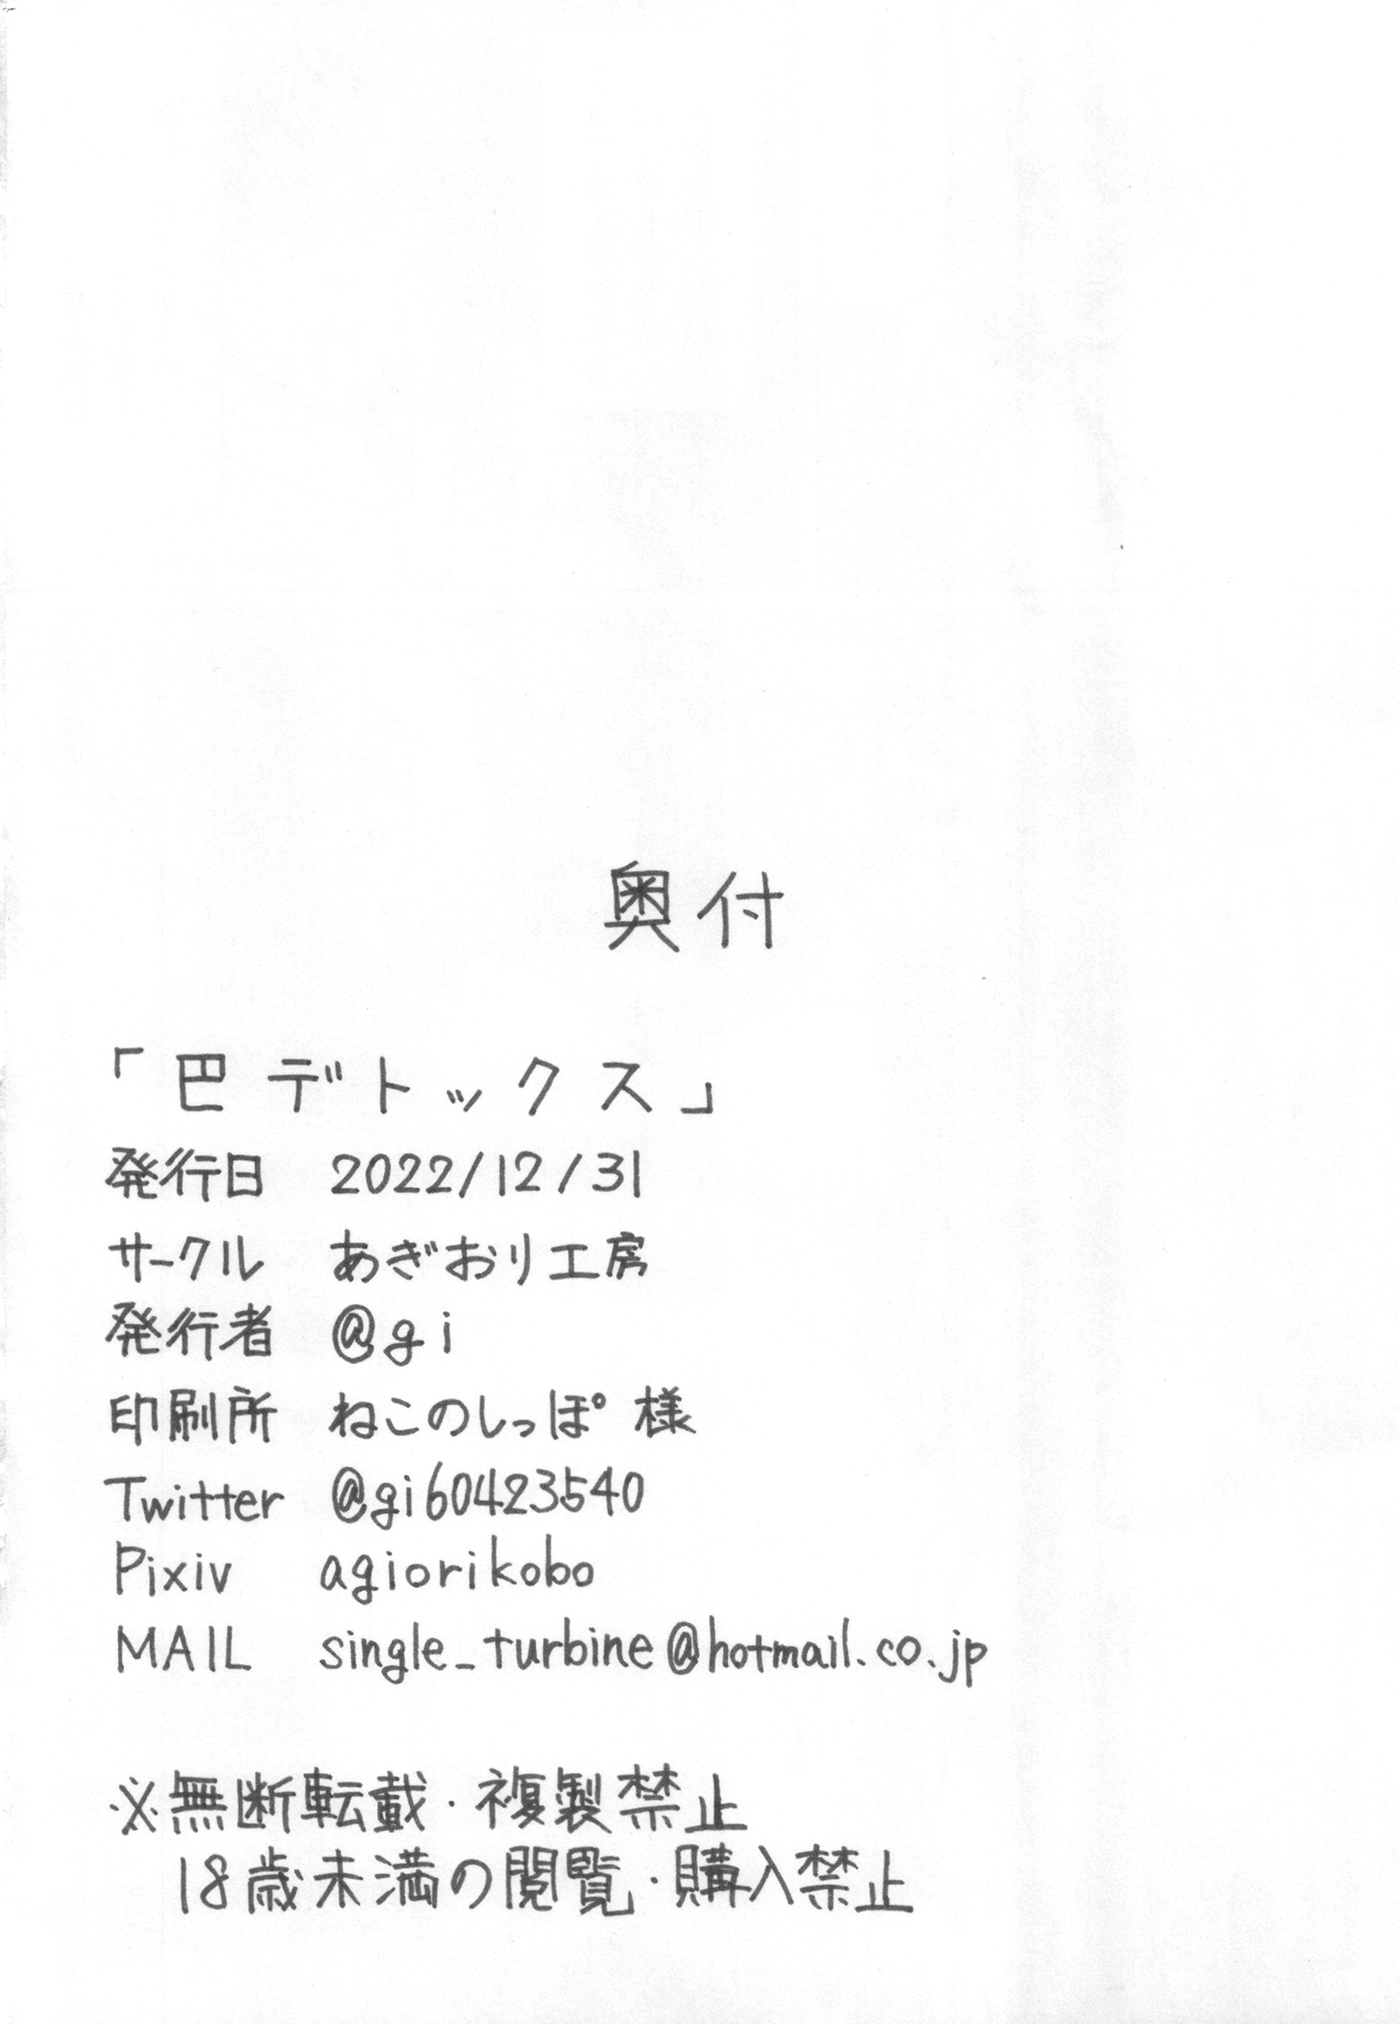 奥付
「巴デトックス」
発行日 2022/12/31
サークル あぎおり工房
発行者 @gi
印刷所 ねこのしっぽ 様
Twitter @gi60423540
Pixiv agiorikobo
MAIL single_turbine@hotmail.co.jp
※無断転載・複製禁止
18歳未満の閲覧・購入禁止